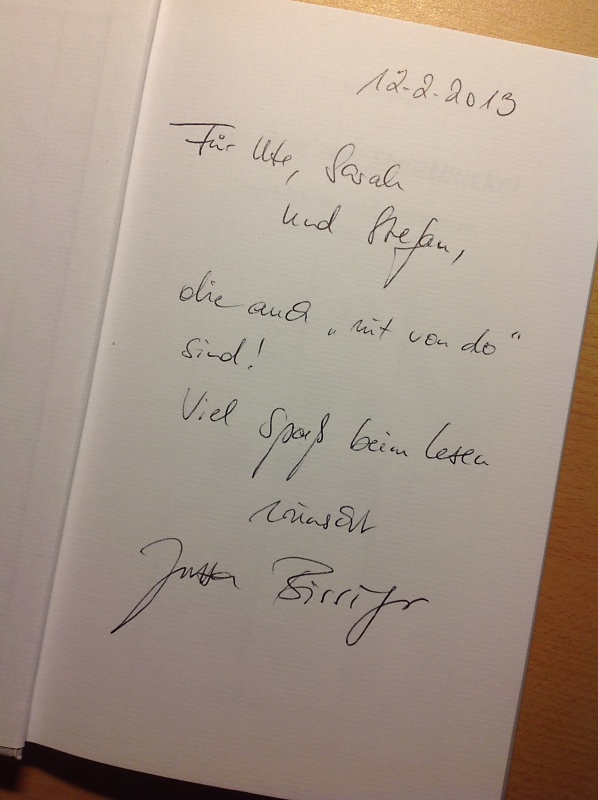 12-2-2013
Für Ute, Sarah
und Stefan,
die auch „nit von do“
sind!
Viel Spaß beim Lesen
wünscht
Jutta